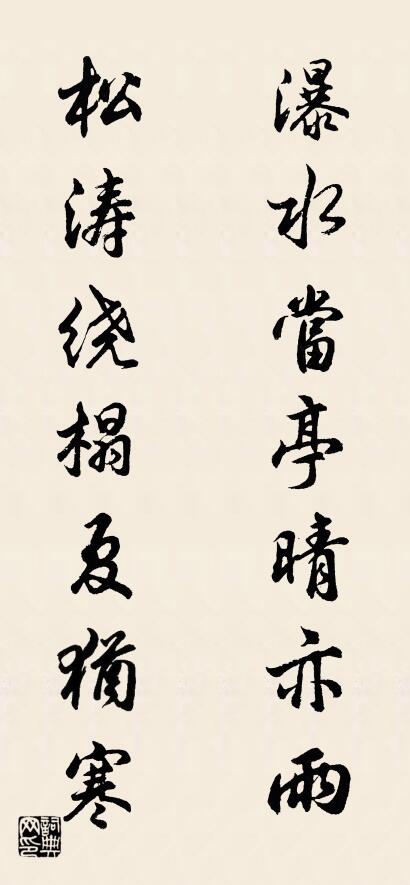 瀑水當亭晴亦雨
松涛绕榻夏犹寒
詞典网印